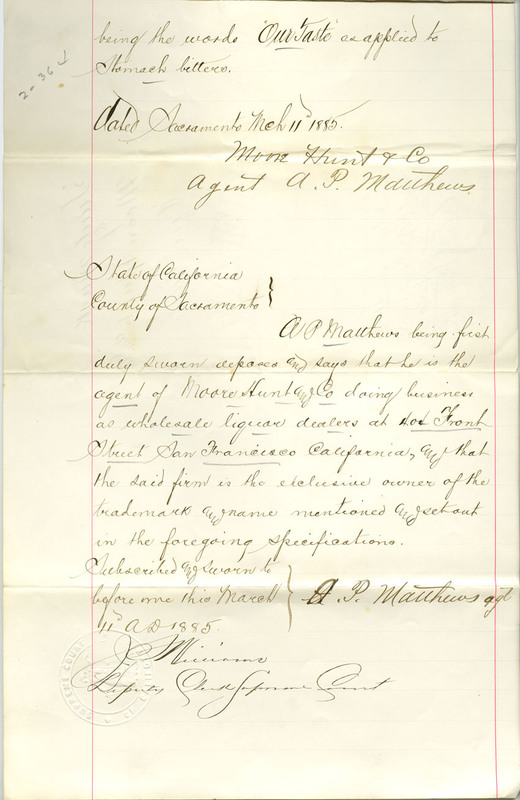 being the words "Our Taste" as applied to
Stomach bitters.
Dated Sacramento Mch 11th 1885.
Moore Hunt & Co
Agent A. P. Matthews.
State of California
County of Sacramento }
A P Matthews being first
duly sworn deposes and says that he is the
agent of Moore Hunt and Co doing business
as wholesale liquor dealers at 404 Front
Street San Francisco California, and that
the said firm is the exclusive owner of the
trademark and name mentioned and set out
in the foregoing specifications.
Subscribed and sworn to
before me this March } A. P. Matthews agt
11th A D 1885.
Williams
Deputy Clerk Supreme Court